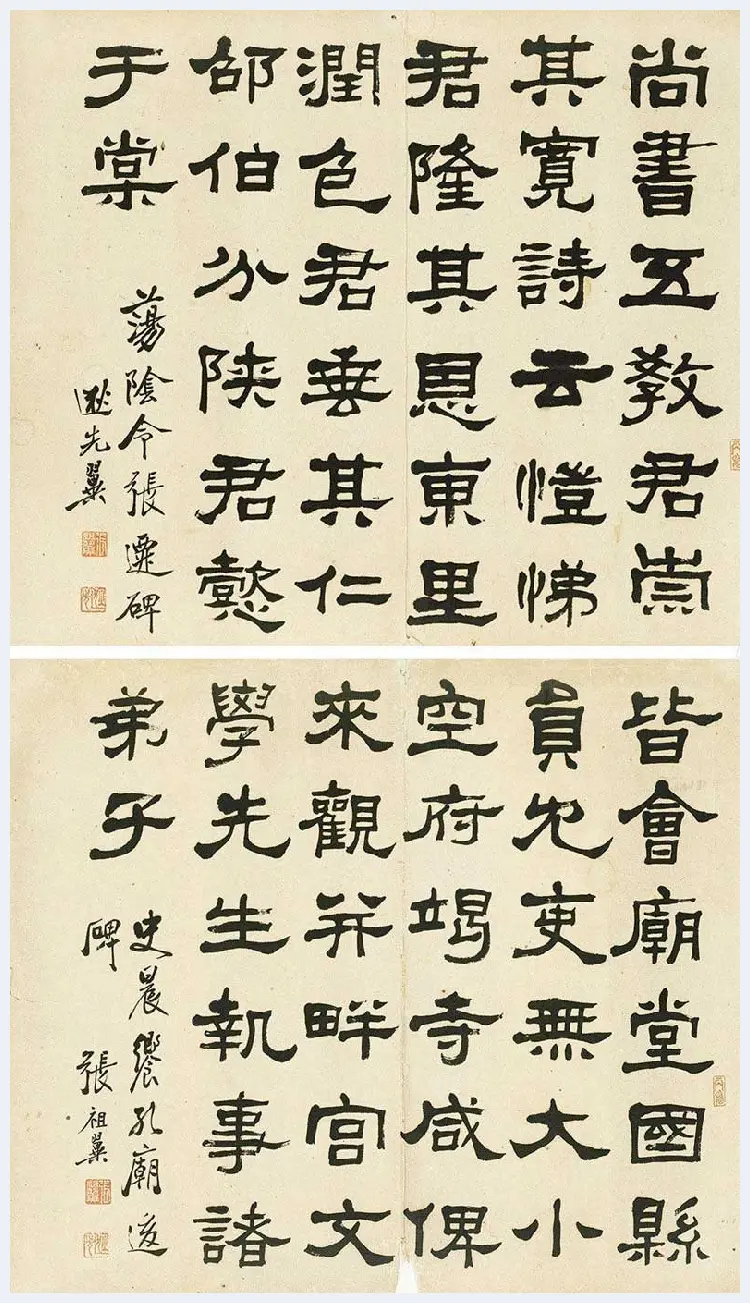 尚書五教君崇
其寬詩云愷悌
君隆其恩東里
潤色君垂其仁
邵伯分陝君懿
于棠
蕩陰令張遷碑
逖先翼
皆會廟堂國縣
員冗吏無大小
空府竭寺咸俾
來觀并畔宮文
學先生執事諸
弟子
史晨饗孔廟後
碑 張祖翼